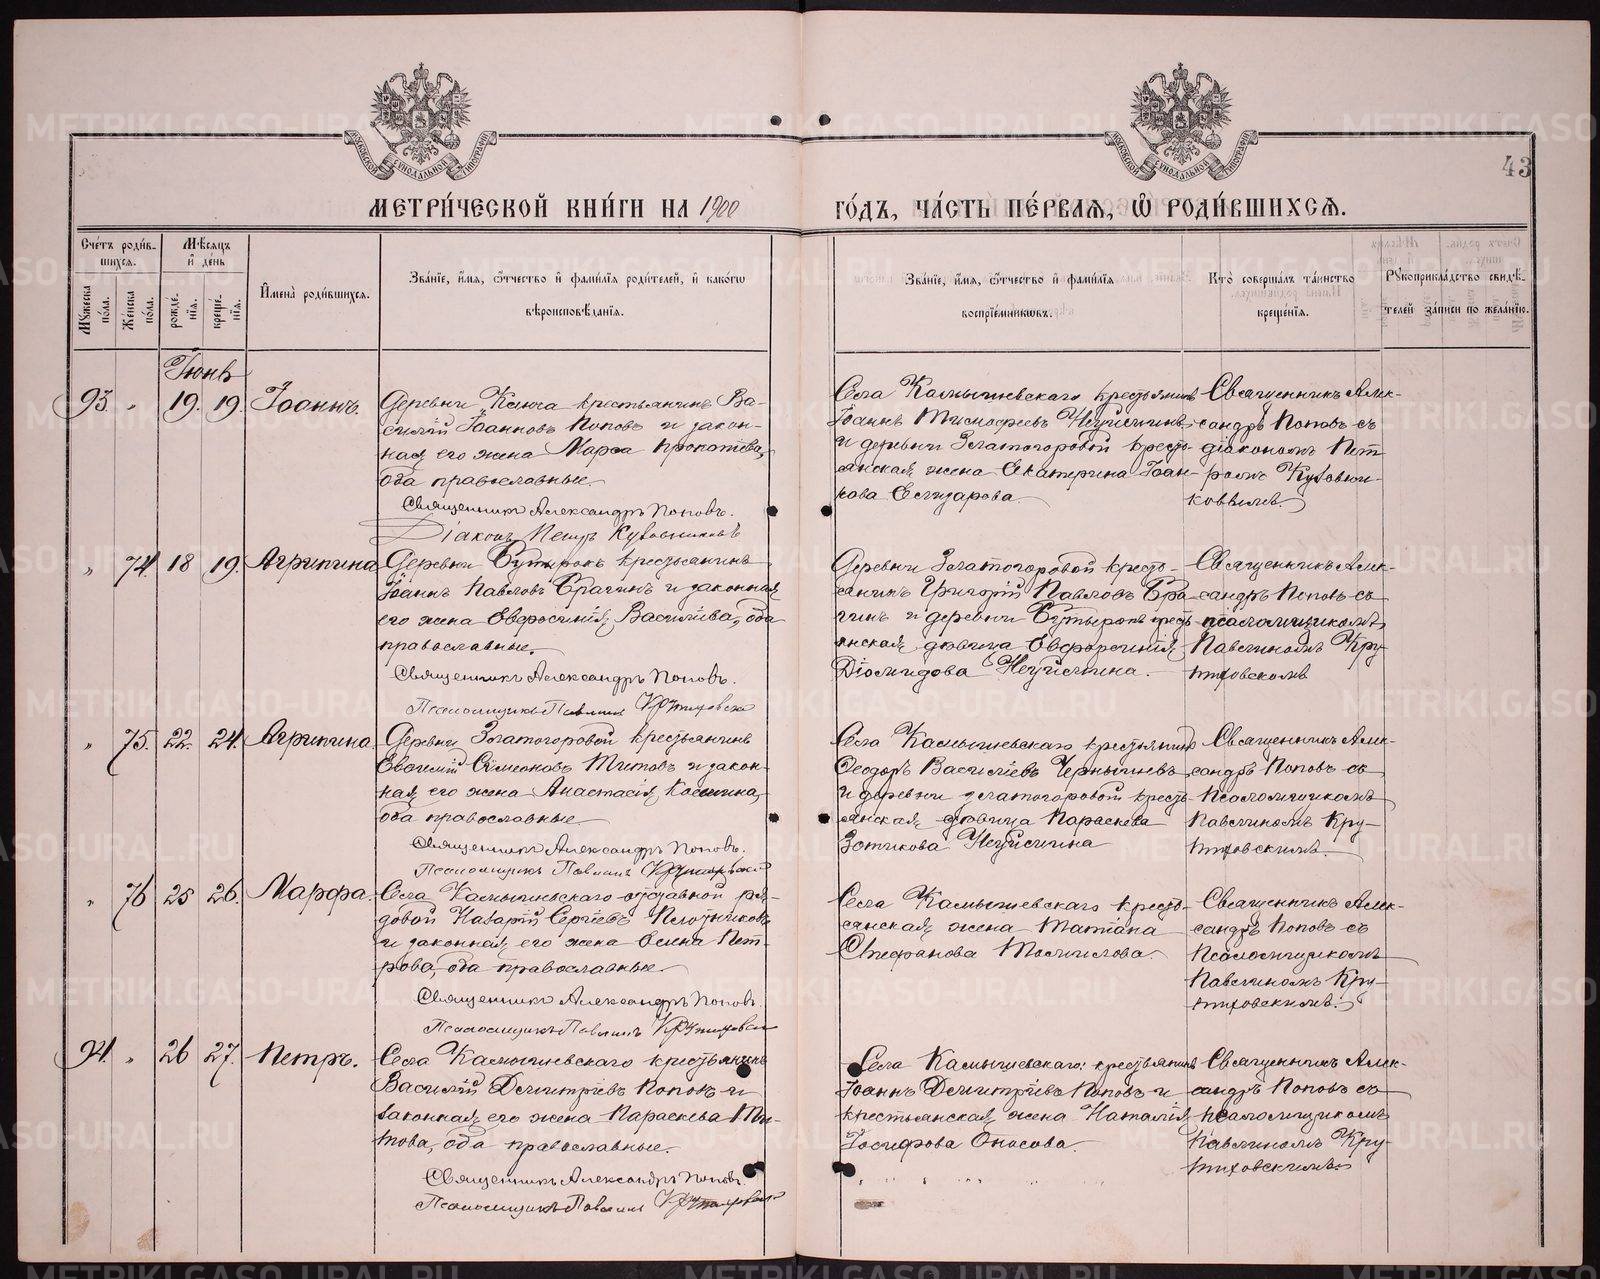 43
МЕТРИ́ЧЕСКОЙ КНИ́ГИ НА 1900
ГО́ДЪ, ЧА́СТЬ ПЕ́РВАЯ, Ѡ РОДИ́ВШИХСЯ.
Сче́тъ роди́в-
шихся.
Мꙋ́жеска по́ла.
Же́нска по́ла.
Мѣ́сяцъ и де́нь
рожде́-
нїя.
креще́-
нїя.
И҆мена̀ роди́вшихся.
Зва́нїе, и҆́мя, ѻ҆́тчество и҆ фами́лїя роди́телей, и҆ како́гѡ
вѣроисповѣ́данїя.
Зва́нїе, и҆́мя, ѻ҆́тчество и҆ фами́лїя
воспрїе́мникѡвъ.
Кто̀ соверша́лъ та́инство
креще́нїя.
Рꙋкоприкла́дство свидѣ́-
телей за́писи по жела́нїю.
Іюнь
93. " 19. 19. Іоаннъ.
Деревни Ключа крестьянинъ Ва-
силій Іоанновъ Поповъ и закон-
ная его жена Марѳа
оба православные.
Священникъ Александръ Поповъ.
Діаконъ Петръ
Села Камышевскаго крестьянинъ
Іоаннъ Тимофеевъ Неуйминъ
и деревни Златогоровой кресть-
янская жена Екатерина Іоан-
нова
Священникъ Алек-
сандръ Поповъ съ
діакономъ Пет-
ромъ
" 74. 18 19. Агрипина
Деревни Бутырокъ крестьянинъ
Іоаннъ Павловъ Брагинъ и законная
его жена Евфросинія Василіева, оба
православные.
Священникъ Александръ Поповъ.
Псаломщикъ Павлинъ Крутиховскій
Деревни Златогоровой кресть-
янинъ Григорій Павловъ Бра-
гинъ и деревни Бутырокъ кресть-
янская дѣвица
Діомидова Неуймина.
Священникъ Алек-
сандръ Поповъ съ
псаломщикомъ
Павлиномъ Кру-
тиховскимъ
" 75. 22. 24. Агрипина
Деревни Златогоровой крестьянинъ
Евфимій Симеоновъ Титовъ и закон-
ная его жена Анастасія Козмина,
оба православные.
Священникъ Александръ Поповъ.
Псаломщикъ Павлинъ Крутиховскій
Села Камышевскаго крестьянинъ
Ѳеодоръ Василіевъ Чернышевъ
и деревни Златогоровой кресть-
янская дѣвица Параскева
Зотикова Неуймина
Священникъ Алек-
сандръ Поповъ съ
Псаломщикомъ
Павлиномъ Кру-
тиховскимъ.
" 76 25 26. Марѳа.
Села Камышевскаго отставной ря-
довой Назарій Сергіевъ Плотниковъ
и законная его жена Елена Пет-
рова, оба православные.
Священникъ Александръ Поповъ.
Псаломщикъ Павлинъ Крутиховскій
Села Камышевскаго кресть-
янская жена Татіана
Стефанова
Священникъ Алек-
сандръ Поповъ съ
Псаломщикомъ
Павлиномъ Кру-
тиховскимъ.
94. " 26 27. Петръ.
Села Камышевскаго крестьянинъ
Василій Димитріевъ Поповъ и
законная его жена Параскева Ти-
това, оба православные.
Священникъ Александръ Поповъ.
Псаломщикъ Павлинъ Крутиховскій
Села Камышевскаго: крестьянинъ
Іоаннъ Димитріевъ Поповъ и
крестьянская жена Наталія
Іосифова
Священникъ Алек-
сандръ Поповъ съ
псаломщикомъ
Павлиномъ Кру-
тиховскимъ.
METRIKI.GASO-URAL.RU